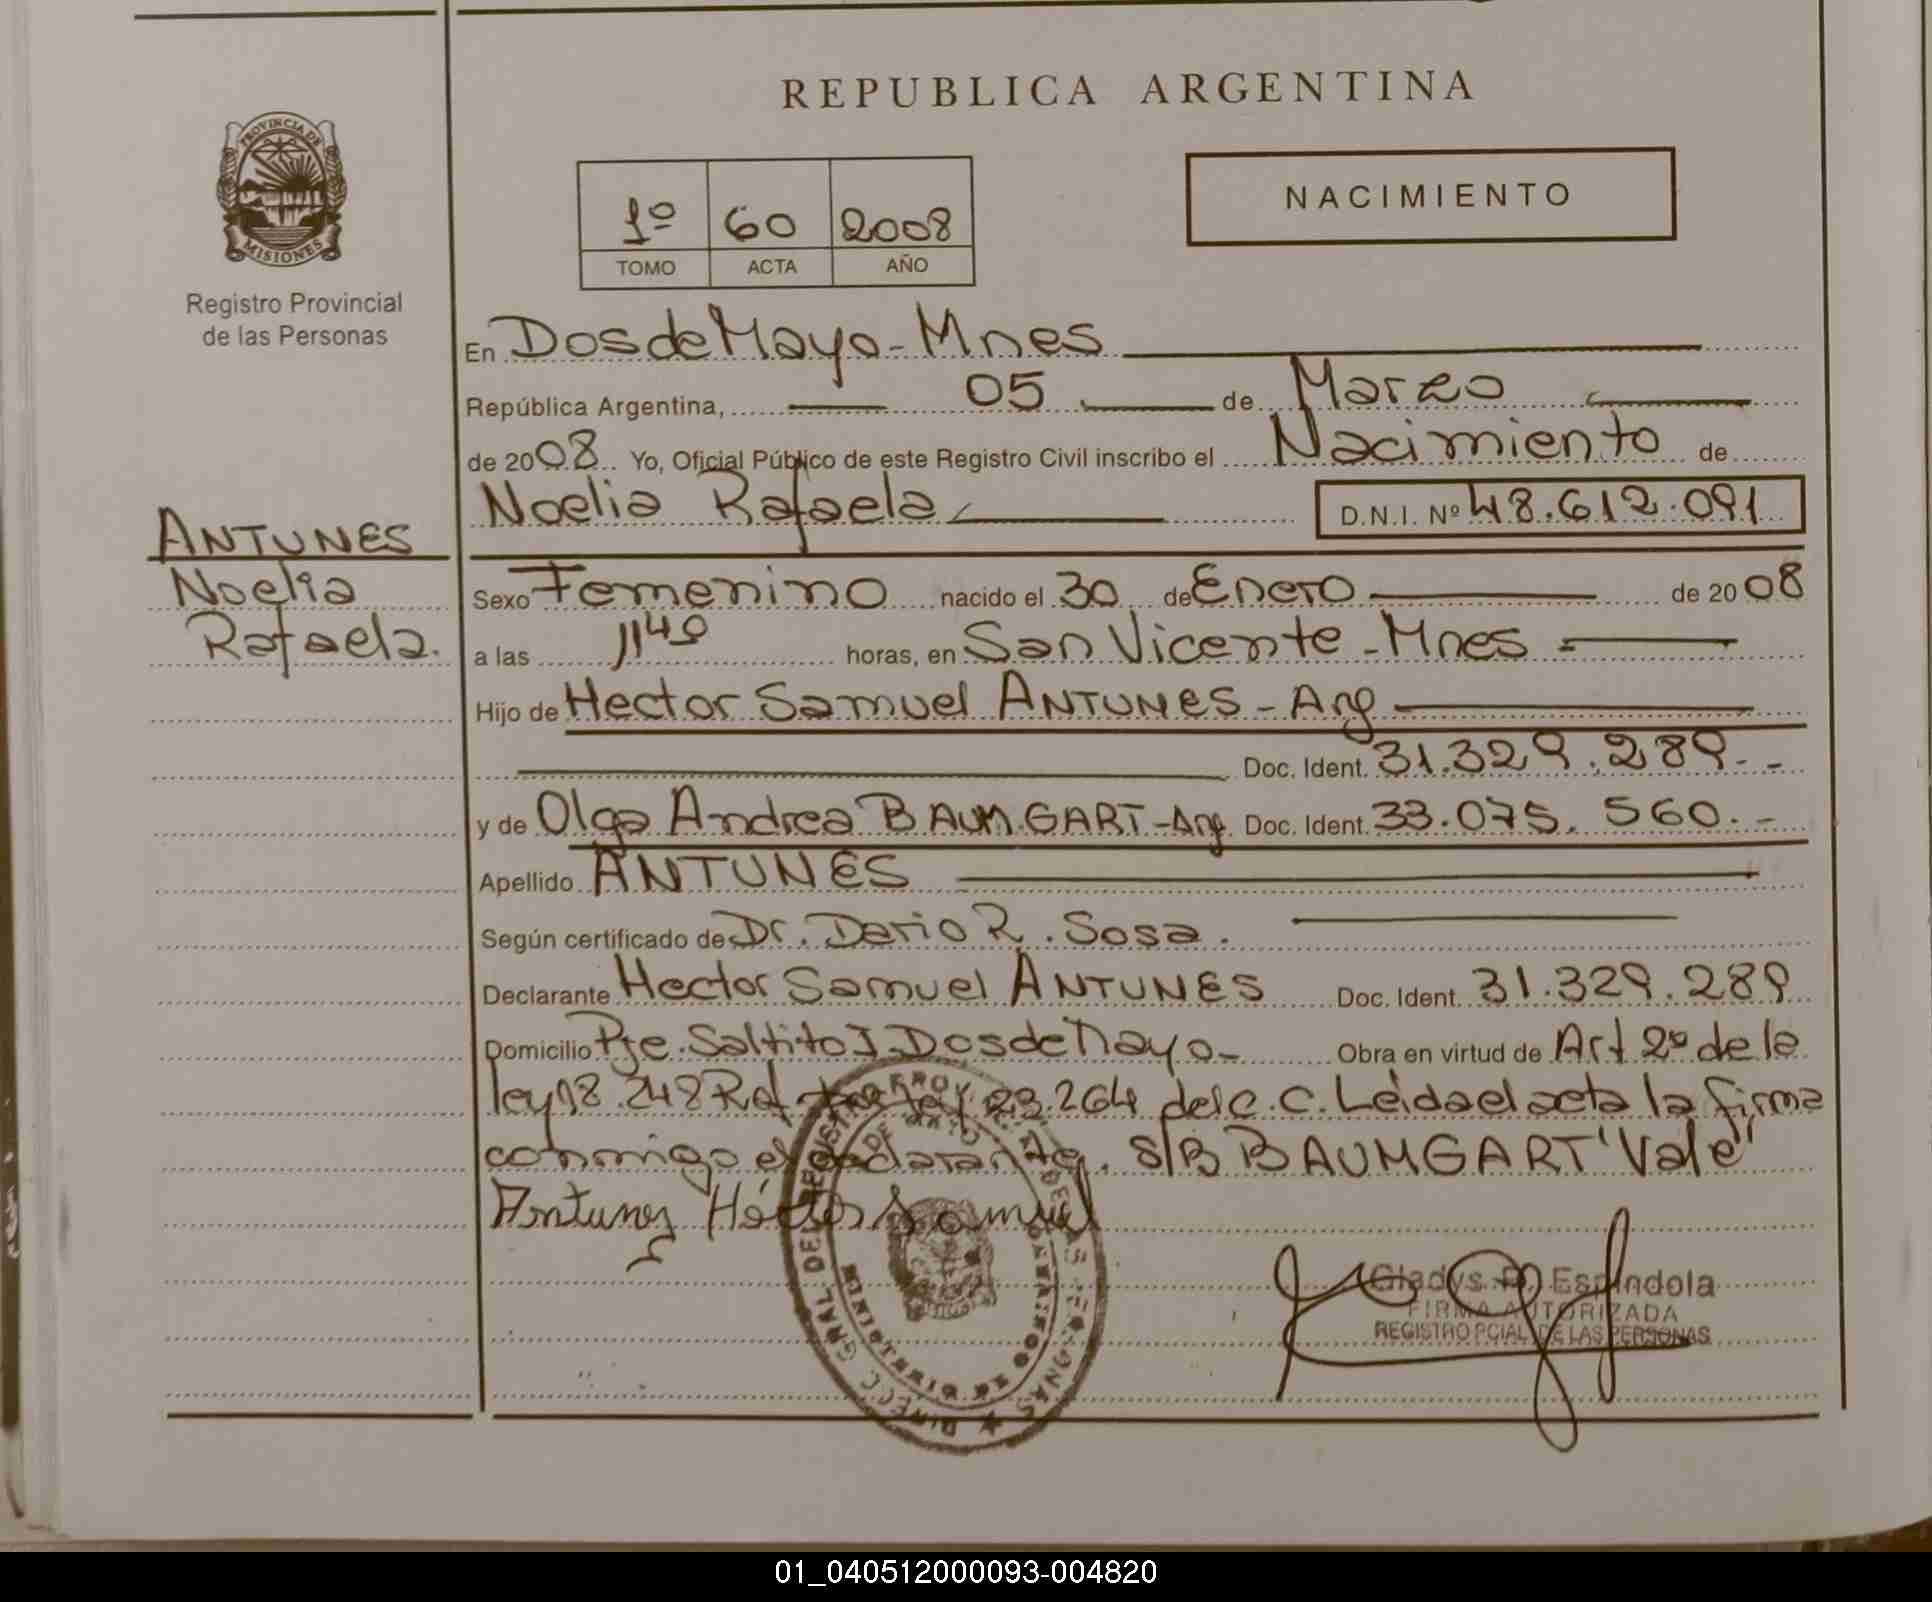 REPUBLICA ARGENTINA
PROVINCIA DE
MISIONES
Registro Provincial
de las Personas
1º 60 2008
TOMO ACTA AÑO
NACIMIENTO
En Dos de Mayo - Mnes
República Argentina, 05 de Marzo
de 2008 Yo, Oficial Público de este Registro Civil inscribo el Nacimiento de
Noelia Rafaela D.N.I. Nº 48.612.091
ANTUNES
Noelia
Rafaela.
Sexo Femenino nacido el 30 de Enero de 2008
a las 11 40 horas, en San Vicente - Mnes
Hijo de Hector Samuel ANTUNES - Arg
Doc. Ident. 31.329.289.-
y de Olga Andrea BAUMGART - Arg. Doc. Ident. 33.075.560.-
Apellido ANTUNES
Según certificado de Dr. Dario R. Sosa.
Declarante Hector Samuel ANTUNES Doc. Ident. 31.329.289
Domicilio Pje. Saltito I Dos de Mayo - Obra en virtud de Art 2º de la
ley 18.248 Ref. por ley 23.264 del C.C. Leída el acta la firma
conmigo el declarante. S/B BAUMGART "Vale"
Antunez Héctor Samuel
Gladys Espindola
FIRMA AUTORIZADA
REGISTRO PCIAL. DE LAS PERSONAS
01_040512000093-004820